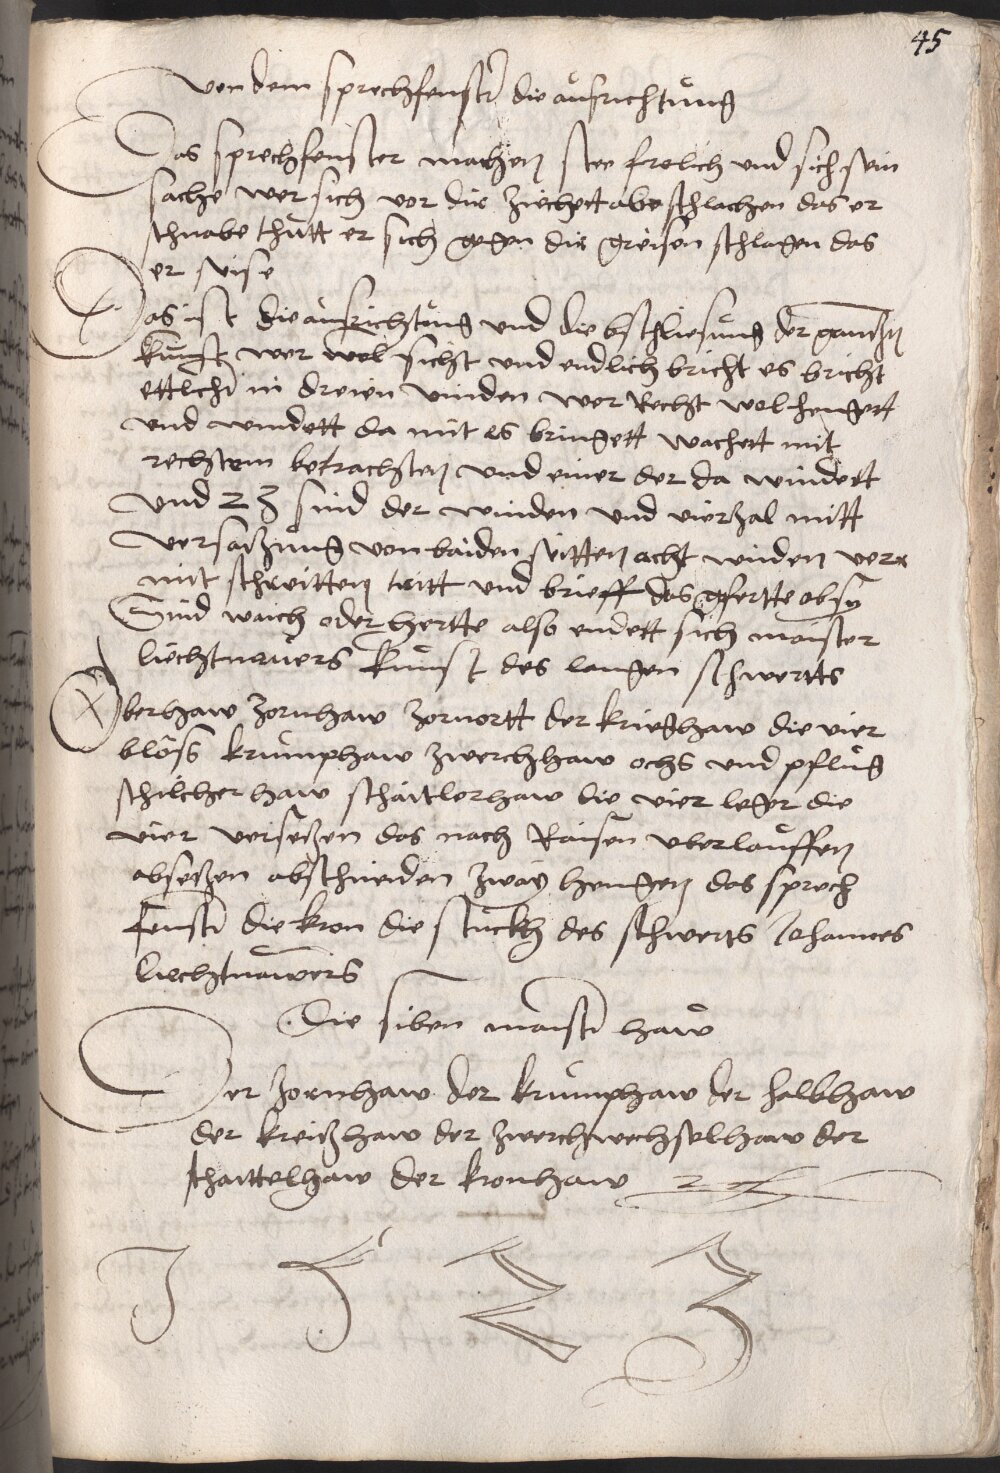 45
Von dem sprechfenstr die aufrichtung
Das sprechfenster machen stee frolich und sich sein
sache wer sich vor dir ziechett abe schlachen das er
schnabe thutt er sich gegen dir greisen schlagen das
er wise
Das ist die aufrichtung und die bschliesung der gantzen
kunst wer wol sicht und endlich bricht es bricht
ettlchs in dreien winden wer Recht wol hengett
und windett da mit es bringett wachett mit
rechtem betrachten und einer der da windett
und 23 sind der winden und vierzal mitt
versatzung von baiden seitten acht winden vere
mit schreitten tritt und brieff das gfertte ob sy
Sind waich oder hertte also endett sich maister
liechtnauers kunst des langen schwertts
Oberhaw zornhaw zornortt der krieghaw die vier
blöss krumphaw zwerchhaw ochs und pflug
schilcher haw schaitlerhaw die vier leger die
vier versetzen das nach Raisen uberlauffen
absetzen abschneiden zway hengen das sprech
fenstr die kron die stuckh des schwerts Johannes
liechtnawers
Die siben maistr haw
Der zornhaw der krumphaw der halbhaw
der kreitzhaw der zwerchwechselhaw der
schaittelhaw der kronhaw
1 5 2 3